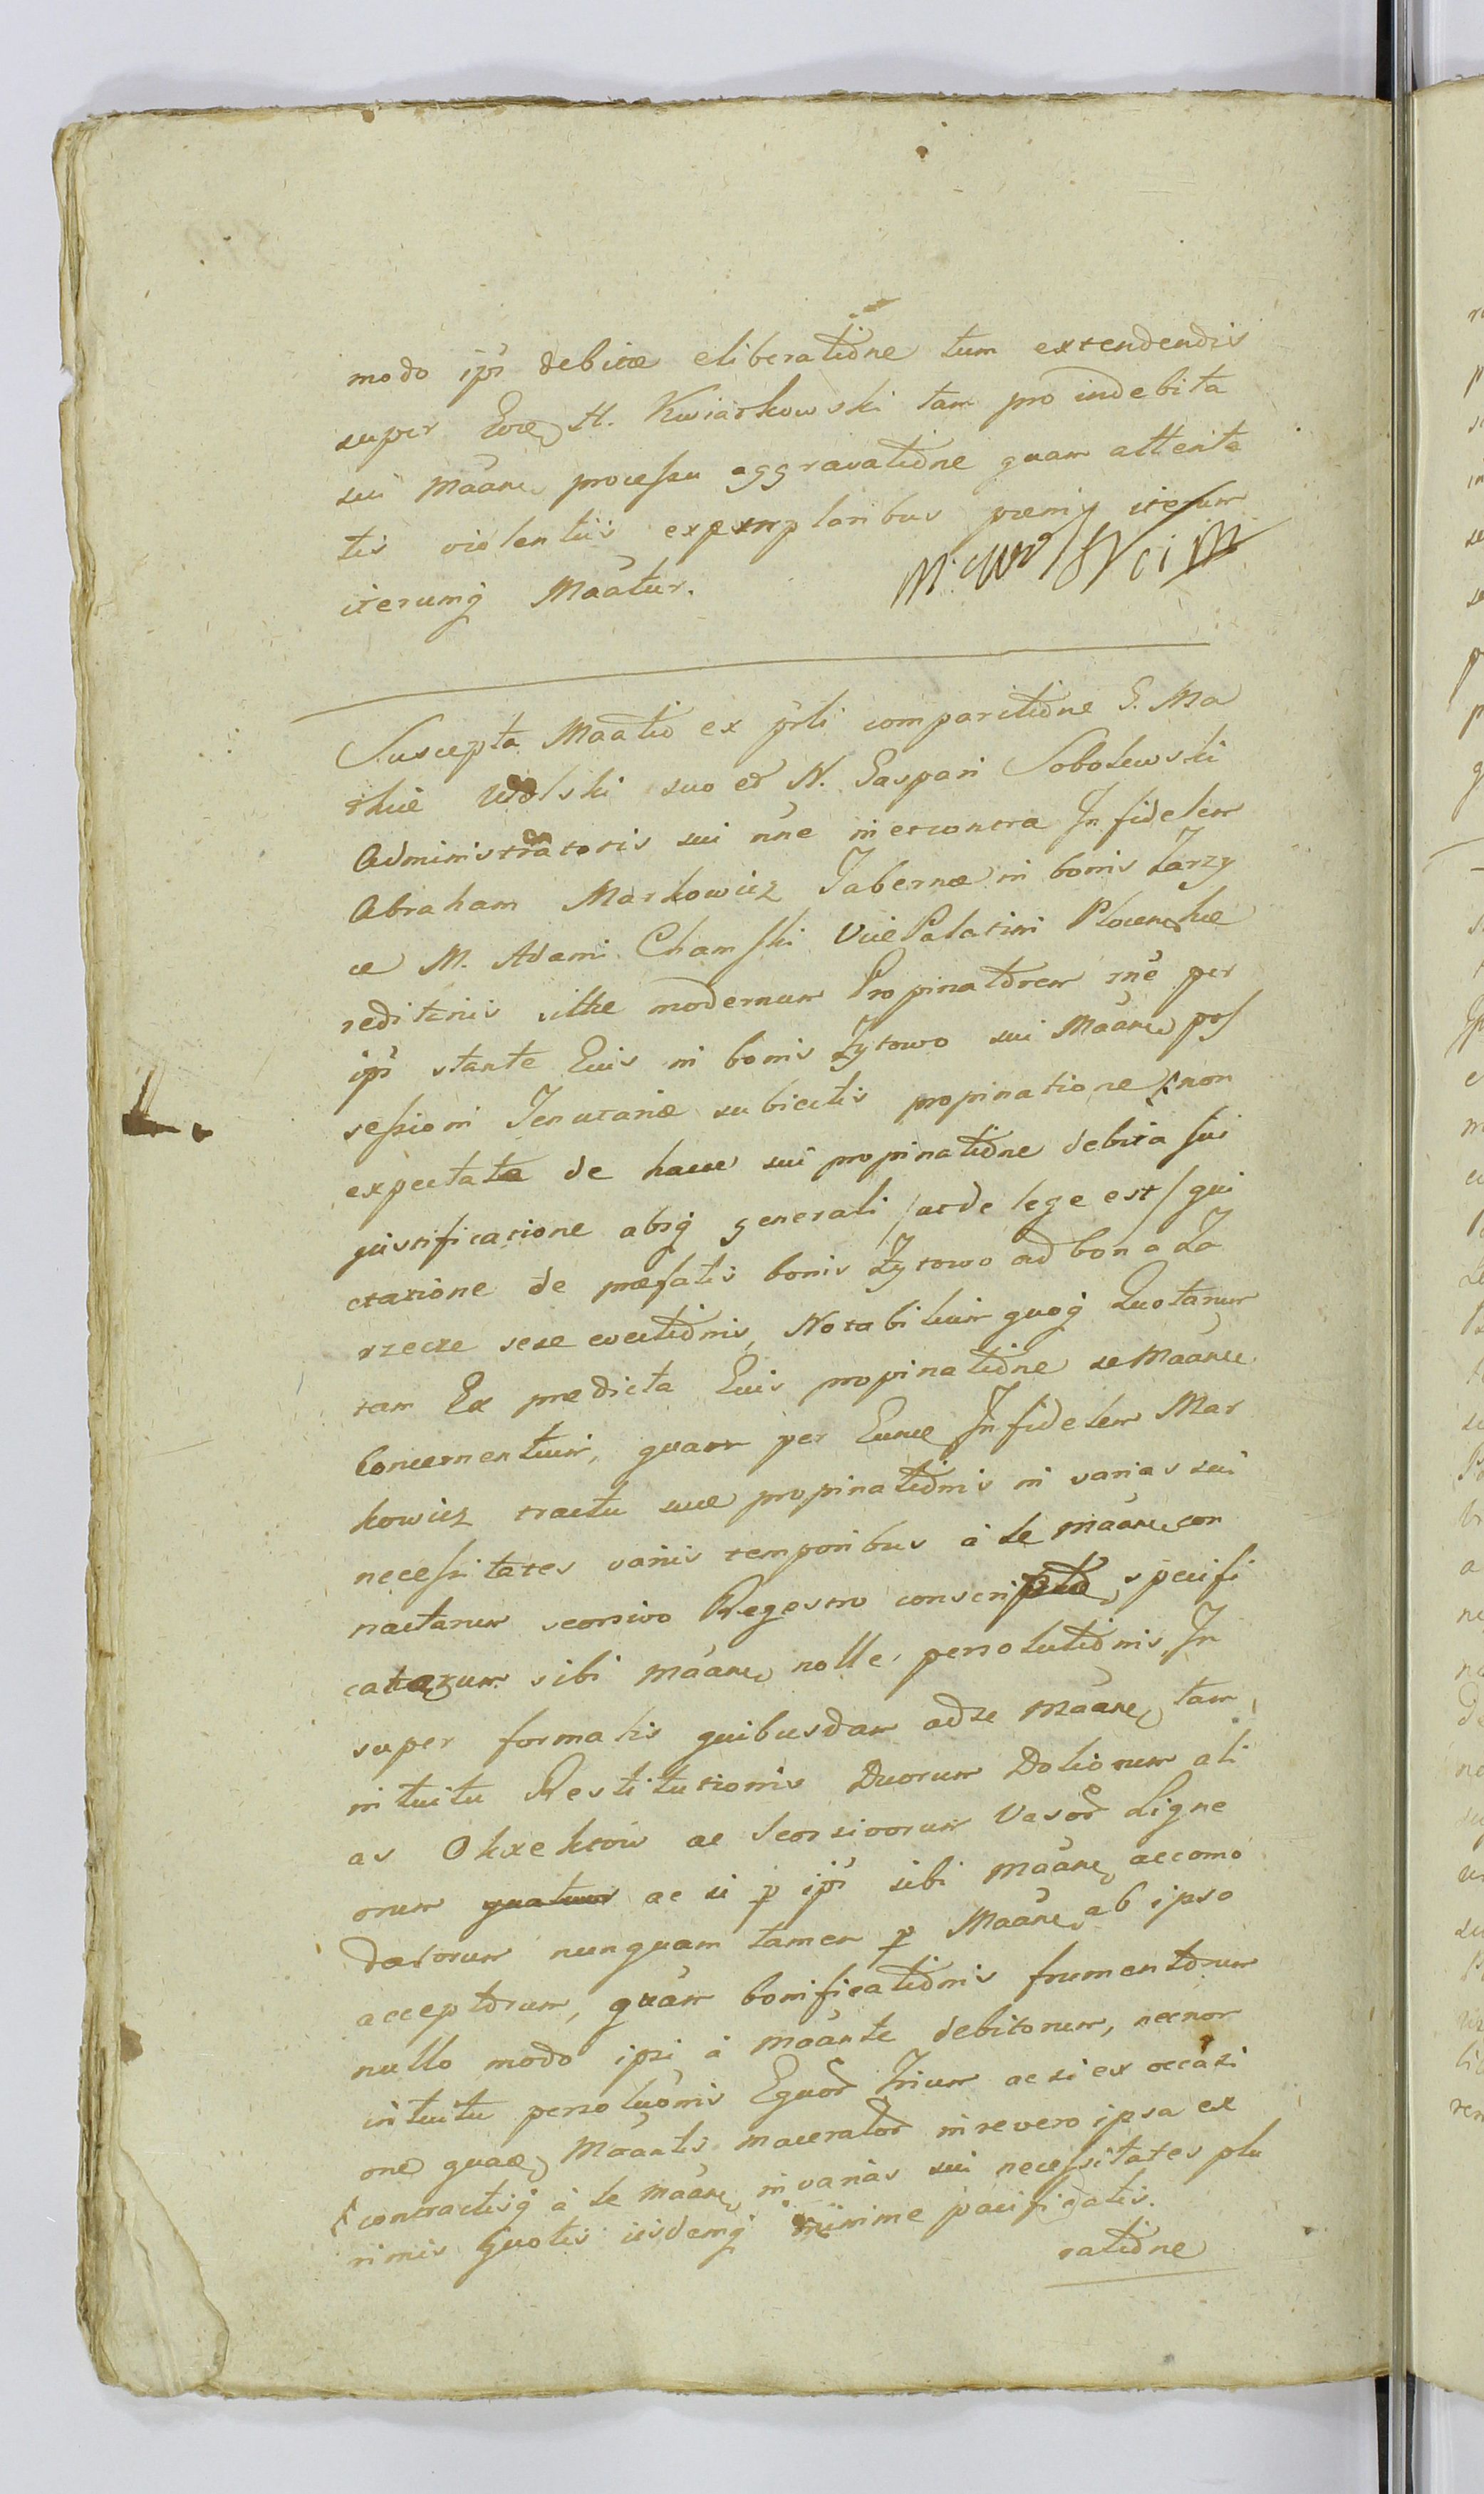 modo ipsi debitae eliberatione tum extendendis
super Eode N. Kwiatkowski tam pro indebita
sui Maane processu aggravatione quam attenta
tis violentiis exemplaribus paenis iterum
iterumq Maatur.
Suscepta Maatio ex prti comparitione G. Ma
thiae Wolski suo et N. Gaspari Sobolewski
Administratoris sui nne in et contra Infidelem
Abraham Markowicz Tabernae in bonis Zarzy
ce M. Adami Chamski Vice Palatini Plocen hae
reditariis sittae modernum Propinatorem rne per
ipsi stante Eius in bonis Zytowo sui Maane pos
sessioni Tenutariae subiectis propinatione non
expectata de hacce sui propinatione debita sui
justificatione absq generali ut de lege est qui
ctatione de praefatis bonis Zytowo ad bona Za
rzecze sese evectionis, Notabilium quoq Quotarum
tam Ex praedicta Eius propinatione se Maane
Concernentium, quam per Eunde Infidelem Mar
kowicz tractu suae propinationis in varias sui
necessitates variis temporibus a se Maane con
tractarum seorsivo Regestro conscripto specifi
catarum sibi Maane nolle persolutionis, In
super formatis quibusdam ad se Maane tam
intuitu Restitutionis Duorum Doliorum ali
as Okxektow ac seorsivorum Vasor Ligne
orum quatuor ac si p ipsi sibi Maane accomo
datorum nunquam tamen p Maane ab ipso
acceptorum, quam bonificationis frumentorum
nullo modo ipsi a Maante debitorum, necnon
intuitu persoluonis Equor Trium ac si ex occasi
one quae Maantis macerator in re vero ipsa ex
contractisq a se Maane in varias sui necessitates plu
rimis quotis iisdemq minime pacificatis.
ratione